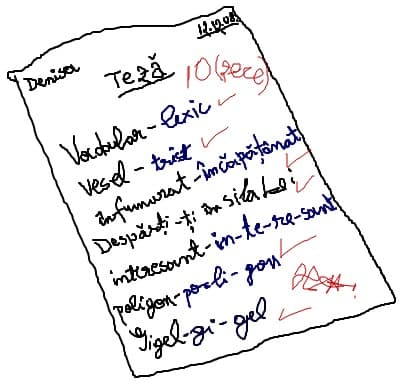 12.12.08
Denisa
Teză 10 (zece)
Vocabular - lexic
Vesel - trist
înfumurat - încăpățânat
Despărți-ți în silabe:
interesant - in-te-re-sant
poligon - po-li-gon
Gigel - gi-gel